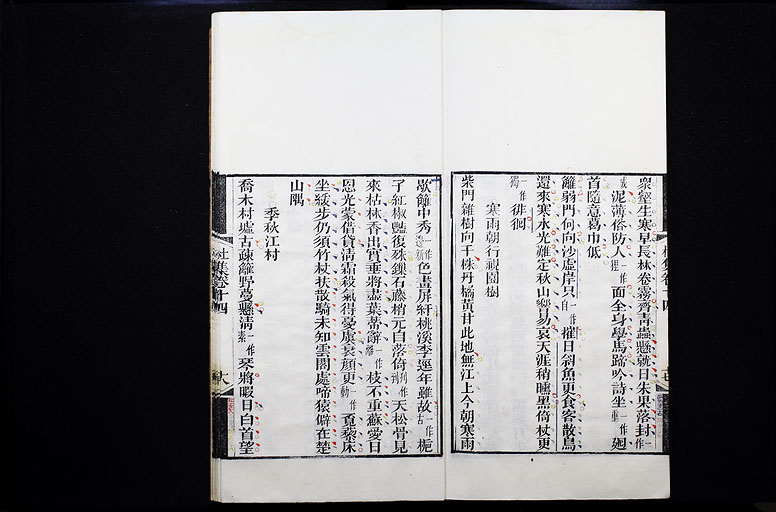 衆壑生寒早長林卷霧齊青蟲懸就日朱果落封一作
或泥薄俗防人一作狸面全身學馬蹄吟詩坐一作重廻
首隨意葛巾低
籬弱門何向沙虛岸只一作自摧日斜魚更食客散鳥
還來寒水光難定秋山響易哀天涯稍曛黑倚杖更
一作獨徘徊
寒雨朝行視園樹
柴門雜樹向千株丹橘黃甘此地無江上今朝寒雨
歇籬中秀一作邊新色畫屏紆桃溪李徑年雖故一作古梔
子紅椒豔復殊鏁石藤梢元自落倚一作到天松骨見
來枯林香出實垂將盡葉蔕辭一作離枝不重蘇愛日
恩光蒙借貸清霜殺氣得憂虞衰顏更一作動覓藜床
坐緩步仍須竹杖扶散騎未知雲閣處啼猿僻在楚
山隅
季秋江村
喬木村墟古疎籬野蔓懸清一作素琴將暇日白首望
杜集卷十四